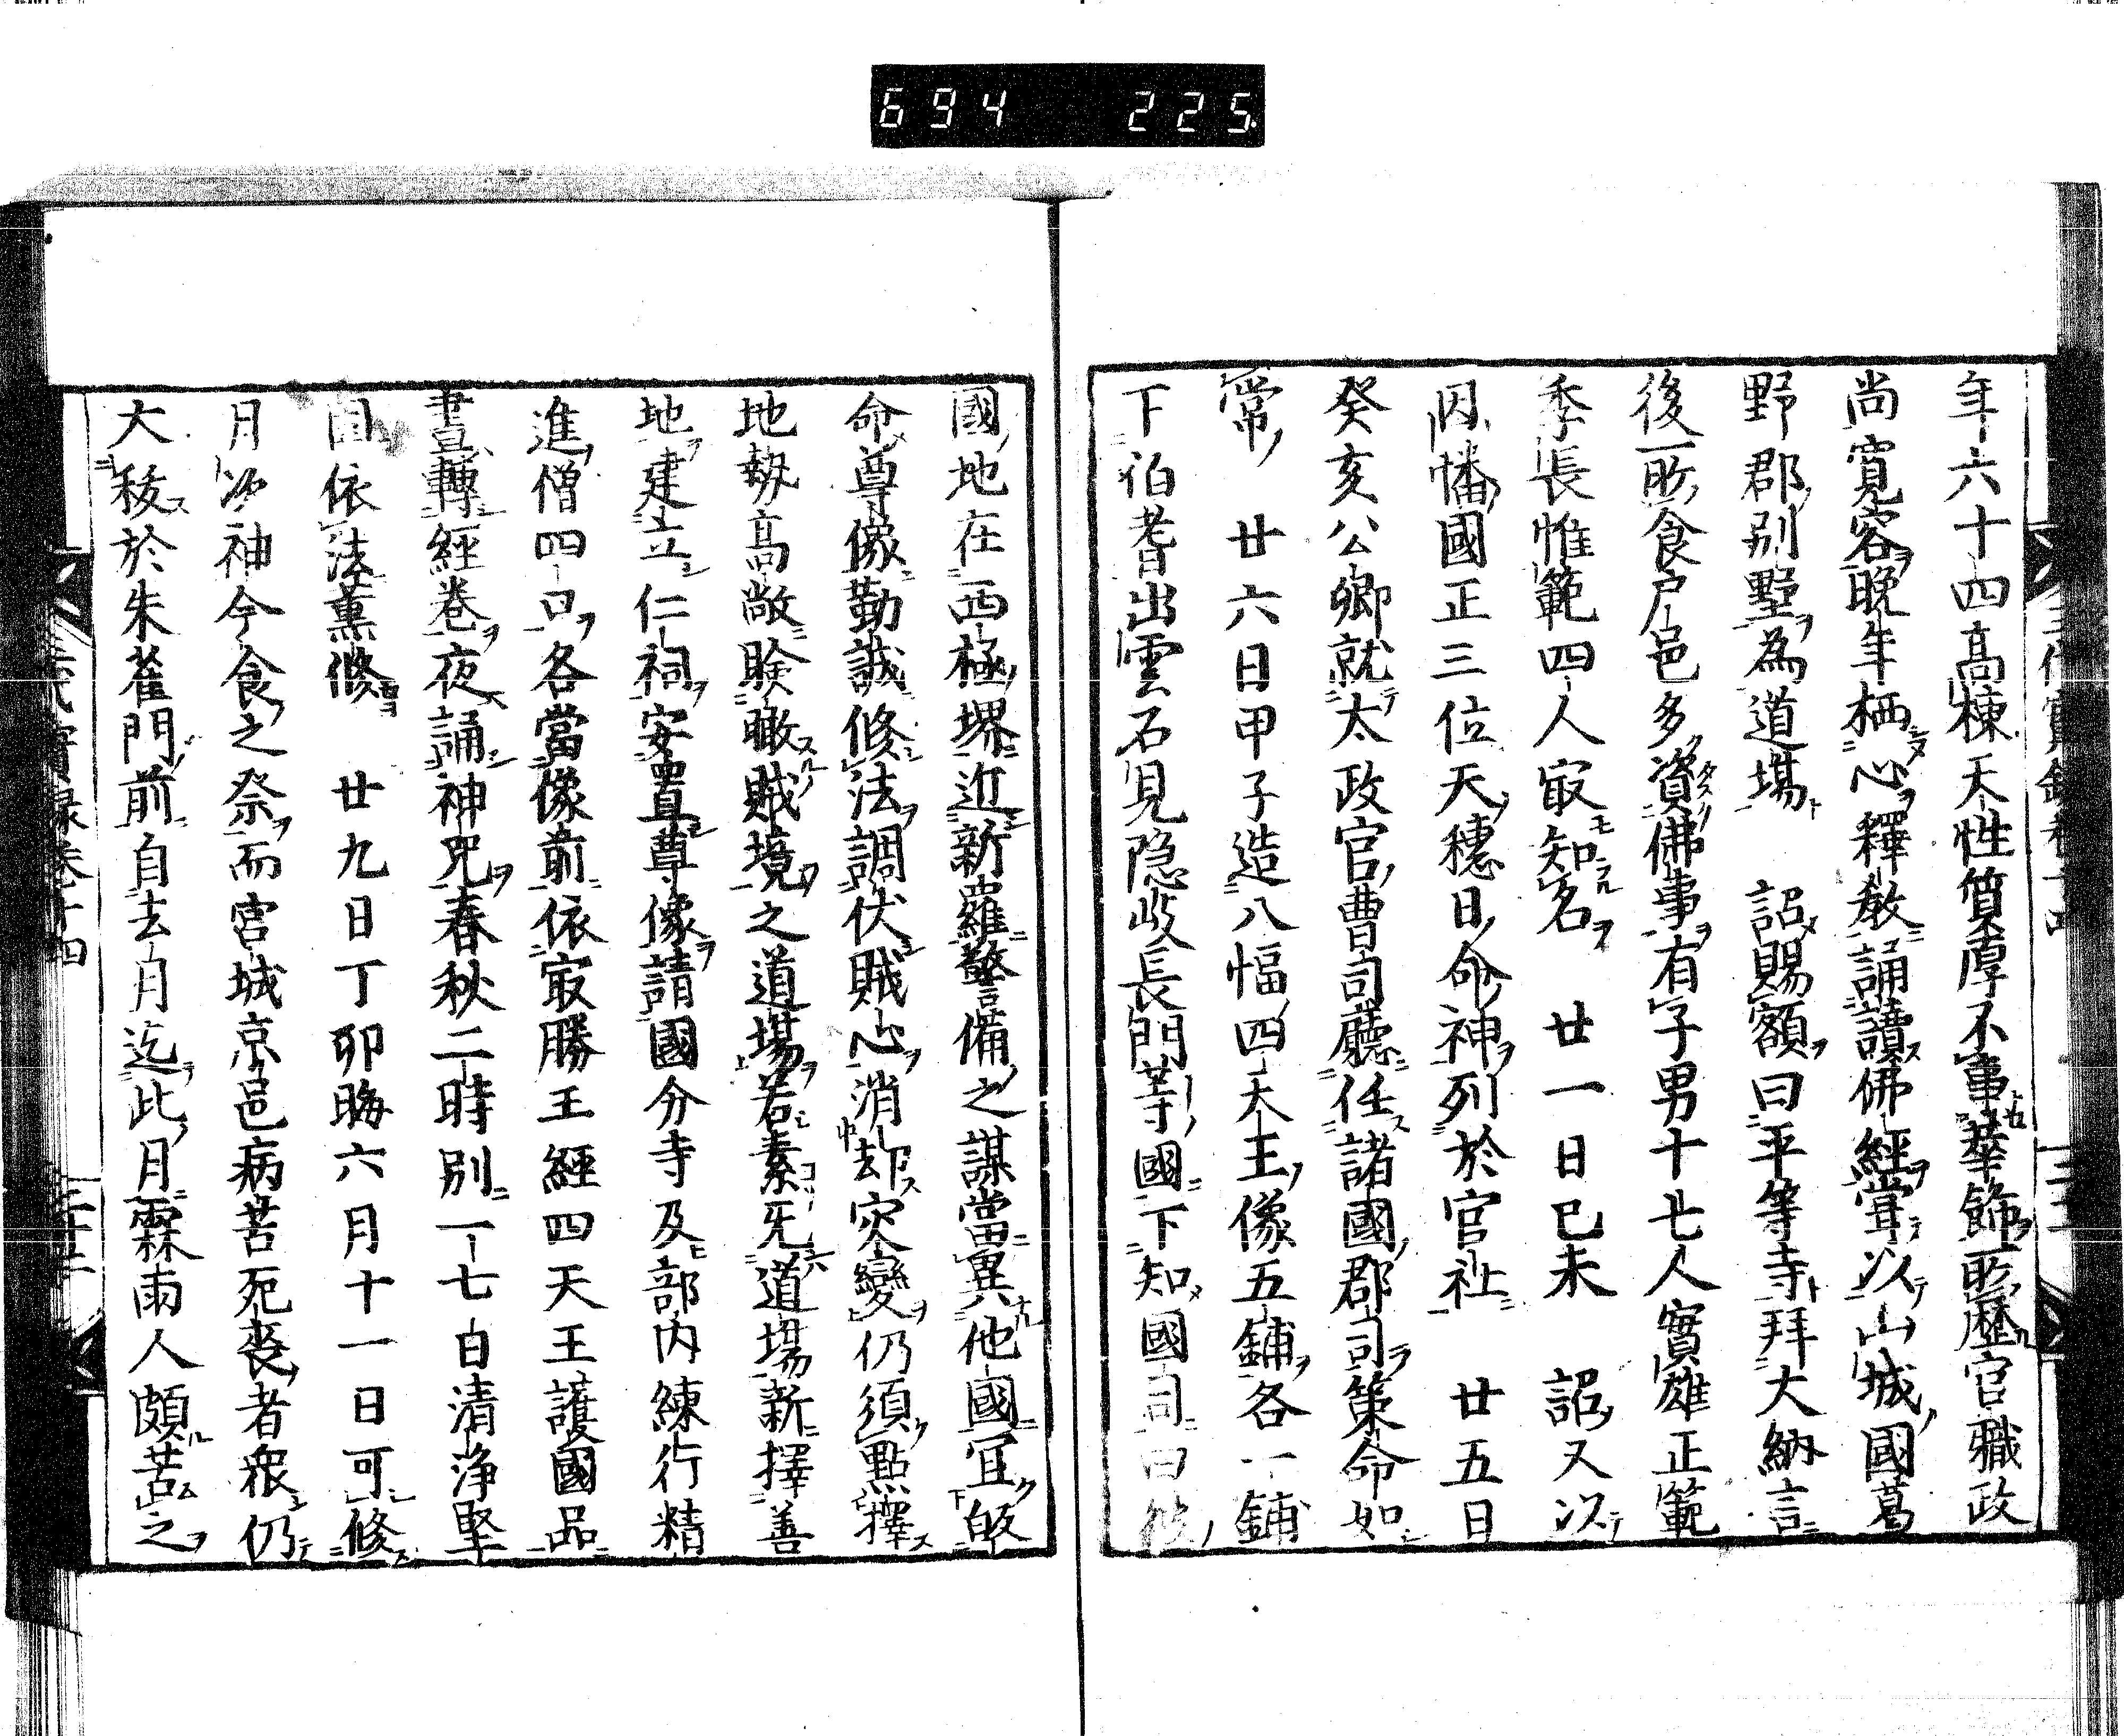 694 225
年六十四高棟天性質厚不事華飾所歷官職政
尚寬容晩年栖心釋教誦讀佛經嘗以山城國葛
野郡別墅為道場　詔賜額曰平等寺拜大納言
後所食戶邑多資佛事有子男十七人實雄正範
季長惟範四人㝡知名　廿一日己未　詔又以
因幡國正三位天穗日命神列於官社　廿五日
癸亥公卿就太政官曹司廳任諸國郡司策命如
常　廿六日甲子造八幅四天王像五鋪各一鋪
下伯耆出雲石見隱岐長門等國下知國司曰彼
國地在西極堺近新羅警備之謀當異他國宜皈
命尊像勤誠修法調伏賊心消却災變仍須點擇
地勢高敞瞼瞰賊境之道場若素无道場新擇善
地建立仁祠安置尊像請國分寺及部內練行精
進僧四口各當像前依㝡勝王經四天王護國品
晝轉經卷夜誦神咒春秋二時別一七日清淨堅
固依法薰修　廿九日丁卯晦六月十一日可修
月次神今食之祭而宮城京邑病苦死喪者衆仍
大秡於朱雀門前自去月迄此月霖雨人頗苦之